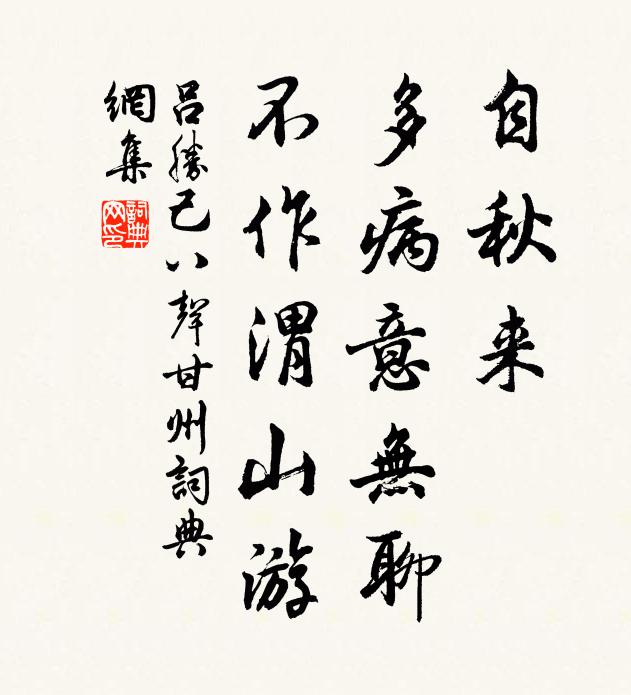 自秋来
多病意無聊
不作渭山游
吕勝己八聲甘州詞典
網集
詞典网印